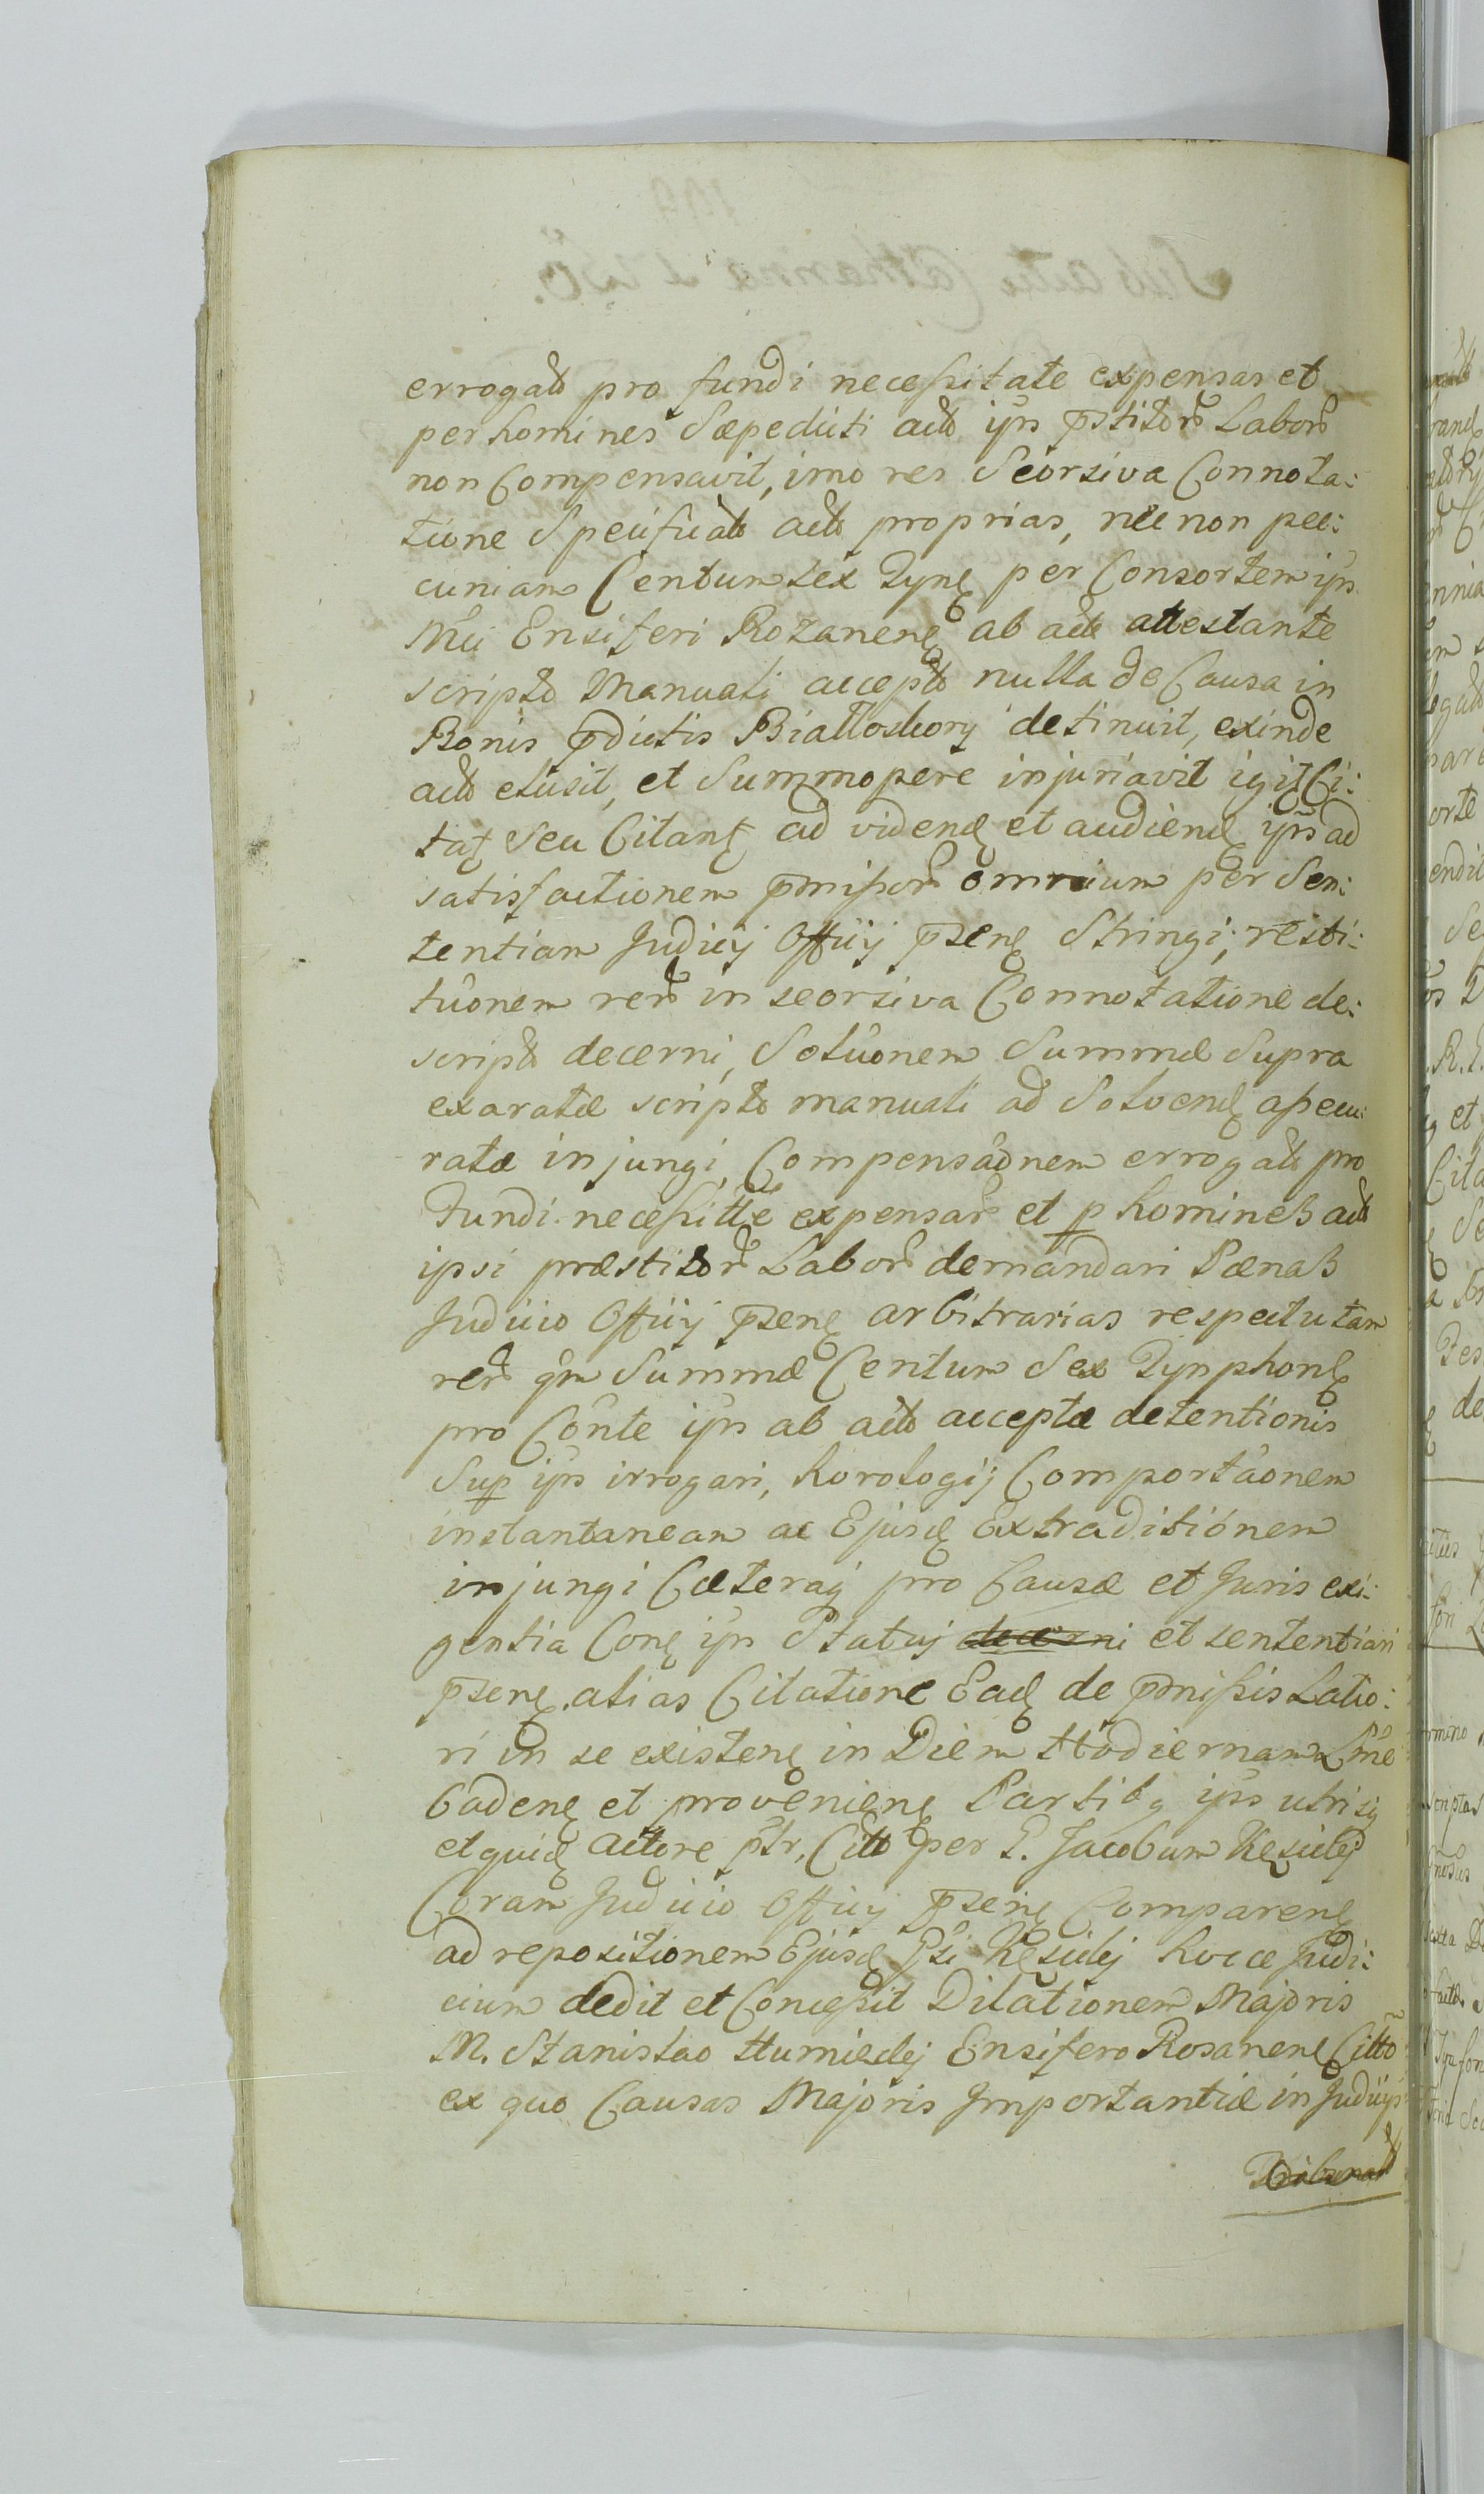 errogatt pro fundi necessitate expensas et
per homines Sæpedicti actt ipn pstitor Labor
non Compensavit, imo res Seorsiva Connota:
tione Specificatt actt proprias, nec non pec:
cuniam Centum sex Tynę per Consortem ipn
Mci Ensiferi Rozanenę ab acte attestante
scripto Manuali accepto nulla de Causa in
Bonis pdictis Biallosbory detinuit, exinde
actt elusit, et Summopere injuriavit igit Ci:
taţ Seu Citanţ ad videnđ et audienđ ipn ad
satisfactionem pmissor omnium per Sen:
tentiam Judicij Officij psenę Stringi, resti:
tuonem rer in seorsiva Connotatione de:
scripto decerni, Soluonem Summæ Supra
exaratæ scripto manuali ad Solvenđ assecu:
ratæ injungi, Compensaonem errogatt pro
Fundi necessitte expensar et p homines actt
ipsi præstitor Labor demandari Pænas
Judicio Officij psenę arbitrarias respectu tam
rer qm Summæ Centum Sex Tynphonę
pro Conte ipn ab actt acceptæ detentionis
Sup ipn irrogari, horologij Comportaonem
instantaneam ac Ejusđ Extraditionem
injungi Cæteraq pro Causæ et Juris exi:
gentia Conę ipn Statuj decerni et sententiari
psenę alias Citatione Eađ de pmissis Latio:
ri in se existenę in Diem Hodiernam Lme
Cadenę et provenienę Partibq ipn utrisq
et quiđ Actore ptr, Citto per G. Jacobum Kęsickj
Coram Judicio Officij psenę Comparenę
ad repositionem Ejusđ Gsi Kęsickj hocce Judi:
cium dedit et Concessit Dilationem Majoris
M. Stanislao Humięckj Ensifero Rosanenę Citto
ex quo Causas Majoris Importantiæ in Judicijs
Tribunal